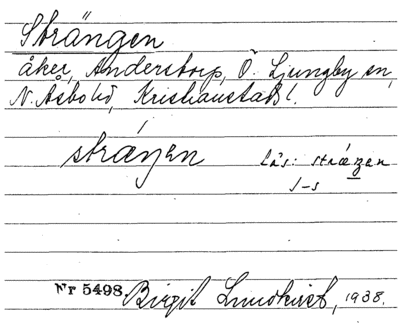 Strängen
åker, Anderstorp, Ö. Ljungby sn,
N. Åsbo hd, Kristianstads l.
stráŋen läs: stræŋen
J-s
Nr 5498 Birgit Lundkvist, 1938.